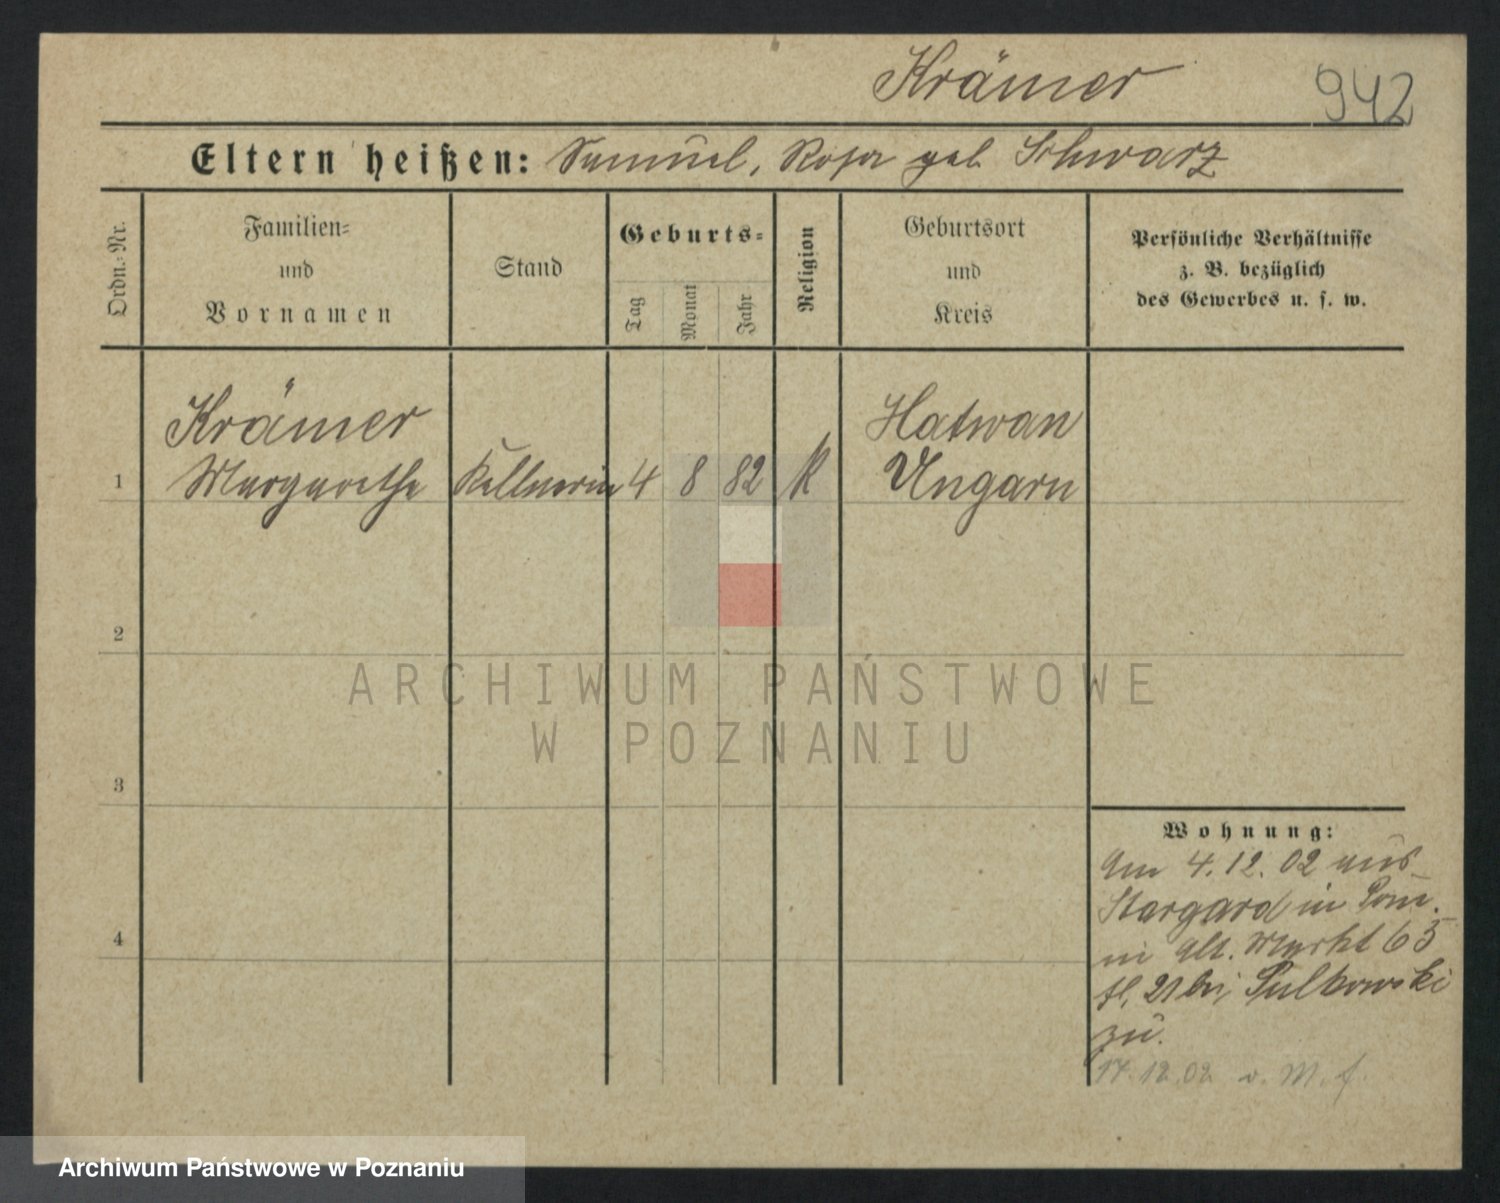 Krämer
942
Eltern heißen: Samuel, Rosa geb. Schwarz
Ordn.-Nr.
Familien-
und
Vornamen
Stand
Geburts-
Tag
Monat
Jahr
Religion
Geburtsort
und
Kreis
Persönliche Verhältnisse
z. B. bezüglich
des Gewerbes u. s. w.
1
Krämer
Margarethe
Kellnerin
4
8
82
K
Hatwan
Ungarn
2
3
4
Wohnung:
Am 4.12.02 aus
Stargard in Pom.
in Alt. Markt 65
II, 21 bei Pulkowski
zu.
17.12.02 v. M. f.
ARCHIWUM PAŃSTWOWE
W POZNANIU
Archiwum Państwowe w Poznaniu